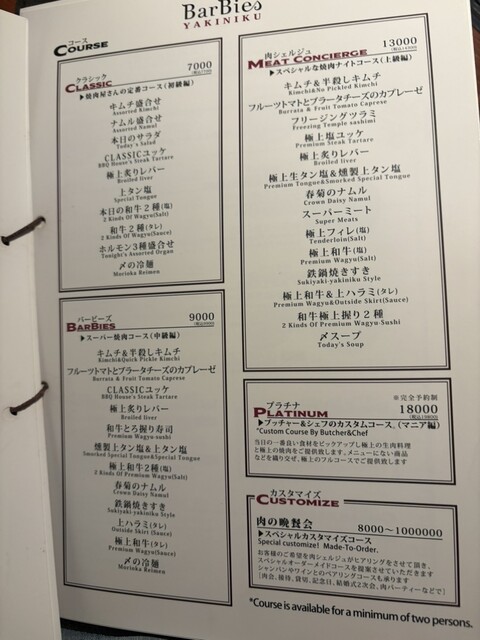 BarBies
YAKINIKU
コース
COURSE
クラシック 7000
CLASSIC
▶焼肉屋さんの定番コース(初級編)
キムチ盛合せ
Assorted Kimchi
ナムル盛合せ
Assorted Namul
本日のサラダ
Today's Salad
CLASSICユッケ
BBQ House's Steak Tartare
極上炙りレバー
Broiled liver
上タン塩
Special Tongue
本日の和牛2種(塩)
2 Kinds Of Wagyu(Salt)
和牛2種(タレ)
2 Kinds Of Wagyu(Sauce)
ホルモン3種盛合せ
Tonight's Assorted Organ
〆の冷麺
Morioka Reimen
バービーズ 9000
BARBIES
▶スーパー焼肉コース(中級編)
キムチ&半殺しキムチ
Kimchi&Quick Pickle Kimchi
フルーツトマトとブラータチーズのカプレーゼ
Burrata & Fruit Tomato Caprese
CLASSICユッケ
BBQ House's Steak Tartare
極上炙りレバー
Broiled liver
和牛とろ握り寿司
Premium Wagyu-sushi
燻製上タン塩&上タン塩
Smorked Special Tongue&Special Tongue
極上和牛2種(塩)
2 Kinds Of Premium Wagyu(Salt)
春菊のナムル
Crown Daisy Namul
鉄鍋焼きすき
Sukiyaki-yakiniku Style
上ハラミ(タレ)
Outside Skirt (Sauce)
極上和牛(タレ)
Premium Wagyu(Sauce)
〆の冷麺
Morioka Reimen
肉シェルジュ 13000
MEAT CONCIERGE
▶スペシャルな焼肉ナイトコース(上級編)
キムチ&半殺しキムチ
Kimchi&No Pickled Kimchi
フルーツトマトとブラータチーズのカプレーゼ
Burrata & Fruit Tomato Caprese
フリージングツラミ
Freezing Temple sashimi
極上塩ユッケ
Premium Steak Tartare
極上炙りレバー
Broiled liver
極上生タン塩&燻製上タン塩
Premium Tongue&Smorked Special Tongue
春菊のナムル
Crown Daisy Namul
スーパーミート
Super Meats
極上フィレ(塩)
Tenderloin(Salt)
極上和牛(塩)
Premium Wagyu(Salt)
鉄鍋焼きすき
Sukiyaki-yakiniku Style
極上和牛&上ハラミ(タレ)
Premium Wagyu&Outside Skirt(Sauce)
和牛極上握り2種
2 Kinds Of Premium Wagyu-Sushi
〆スープ
Today's Soup
プラチナ ※完全予約制
PLATINUM 18000
▶ブッチャー&シェフのカスタムコース、(マニア編)
"Custom Course By Butcher&Chef
当日の一番良い食材をピックアップし極上の生肉料理
と極上の焼肉をご提供致します、メニューにない商品
なども織り交ぜ、極上のフルコースでご提供致します
カスタマイズ
CUSTOMIZE
肉の晩餐会 8000〜1000000
▶スペシャルカスタマイズコース
Special customize! Made-To-Order.
お客様のご希望を肉シェルジュがヒアリングをさせて頂き、
スペシャルオーダーメイドコースを提案させていただきます
シャンパンやワインとのペアリングコースも承ります
[肉会、接待、貸切、記念日、結婚式2次会、肉パーティーなどで]
*Course is available for a minimum of two persons.